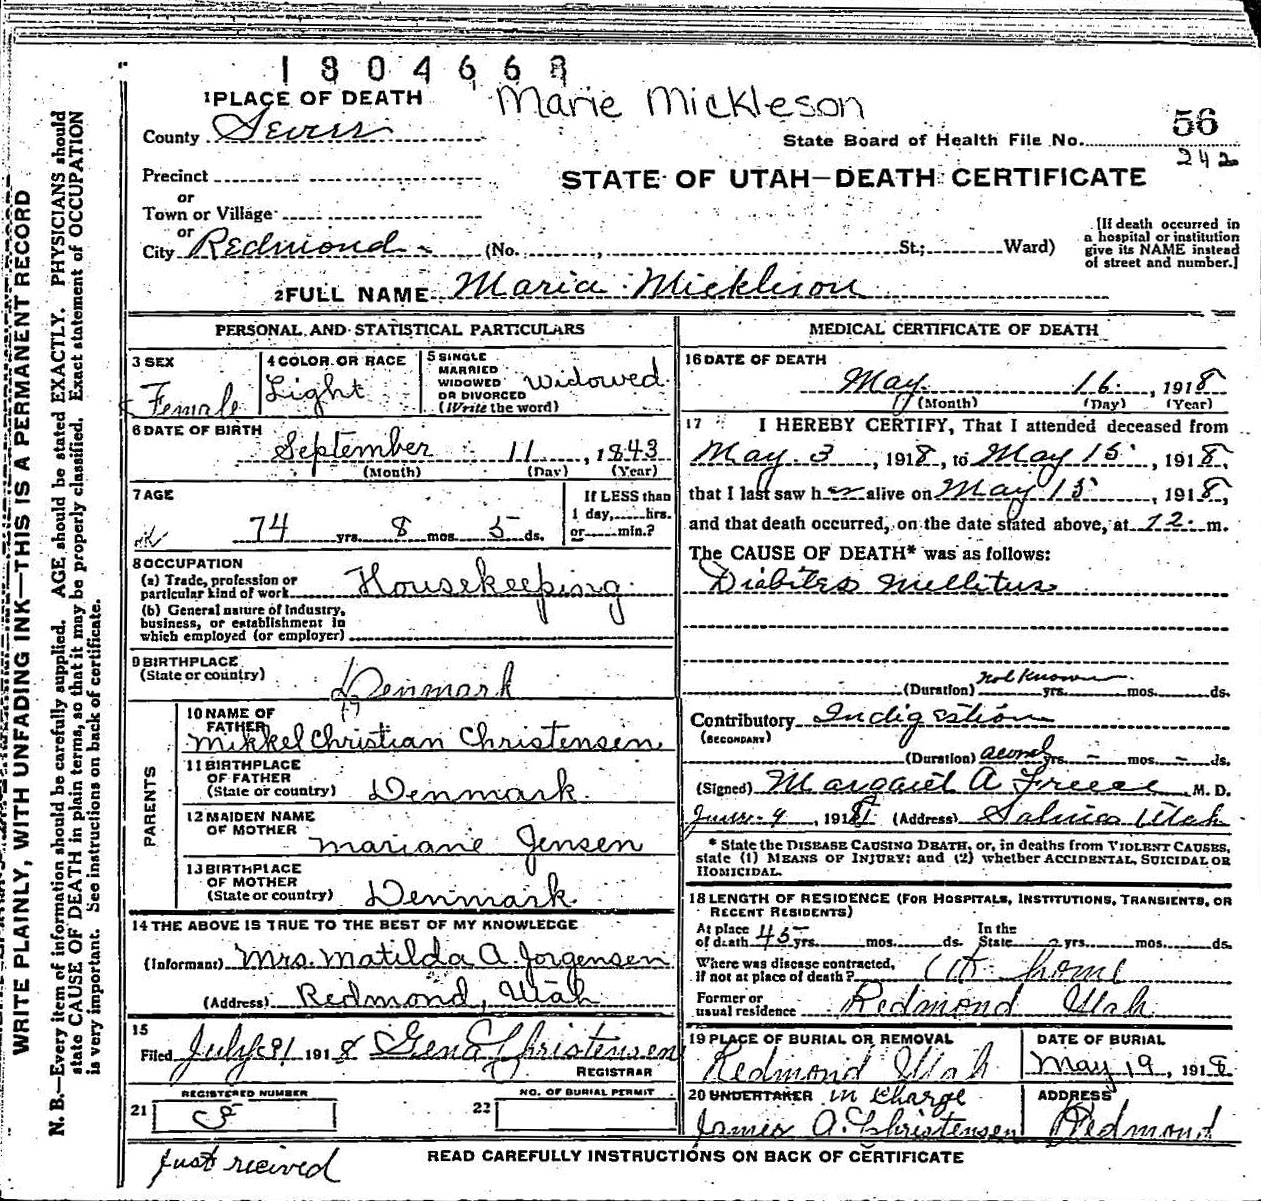 1804668
1 PLACE OF DEATH Marie Mickleson
County Sevier
State Board of Health File No. 56
242
Precinct
STATE OF UTAH—DEATH CERTIFICATE
or
Town or Village
or
City Redmond (No. St.; Ward)
[If death occurred in a hospital or institution give its NAME instead of street and number.]
2 FULL NAME Maria Mickleson
PERSONAL AND STATISTICAL PARTICULARS
3 SEX Female
4 COLOR OR RACE Light
5 SINGLE MARRIED WIDOWED OR DIVORCED (Write the word) Widowed
6 DATE OF BIRTH
September 11, 1843
(Month) (Day) (Year)
7 AGE
74 yrs. 8 mos. 5 ds.
If LESS than 1 day, hrs. or min.?
8 OCCUPATION
(a) Trade, profession or particular kind of work Housekeeping
(b) General nature of industry, business, or establishment in which employed (or employer)
9 BIRTHPLACE
(State or country) Denmark
PARENTS
10 NAME OF FATHER
Mikkel Christian Christensen
11 BIRTHPLACE OF FATHER
(State or country) Denmark
12 MAIDEN NAME OF MOTHER
Mariane Jensen
13 BIRTHPLACE OF MOTHER
(State or country) Denmark
14 THE ABOVE IS TRUE TO THE BEST OF MY KNOWLEDGE
(Informant) Mrs. Matilda A. Jorgensen
(Address) Redmond, Utah
15
Filed July 1918 Christensen
REGISTRAR
REGISTERED NUMBER
21
NO. OF BURIAL PERMIT
22
Just recived
MEDICAL CERTIFICATE OF DEATH
16 DATE OF DEATH
May 16, 1918
(Month) (Day) (Year)
17 I HEREBY CERTIFY, That I attended deceased from
May 3, 1918, to May 15, 1918,
that I last saw her alive on May 15, 1918,
and that death occurred, on the date stated above, at 12 m.
The CAUSE OF DEATH* was as follows:
Diabites Mellitus
(Duration) not known yrs. mos. ds.
Contributory Indigestion
(SECONDARY)
(Duration) yrs. - mos. - ds.
(Signed) Margaret A Freece M. D.
June 4, 1918 (Address) Salina Utah
* State the DISEASE CAUSING DEATH, or, in deaths from VIOLENT CAUSES,
state (1) MEANS OF INJURY; and (2) whether ACCIDENTAL, SUICIDAL OR
HOMICIDAL.
18 LENGTH OF RESIDENCE (FOR HOSPITALS, INSTITUTIONS, TRANSIENTS, OR
RECENT RESIDENTS)
At place of death 45 yrs. mos. ds. In the State yrs. mos. ds.
Where was disease contracted, if not at place of death? At home
Former or usual residence Redmond Utah
19 PLACE OF BURIAL OR REMOVAL
Redmond Utah
DATE OF BURIAL
May 19, 1918
20 UNDERTAKER in charge
James A. Christensen
ADDRESS
Redmond
READ CAREFULLY INSTRUCTIONS ON BACK OF CERTIFICATE
WRITE PLAINLY, WITH UNFADING INK—THIS IS A PERMANENT RECORD
N. B.—Every item of information should be carefully supplied. AGE should be stated EXACTLY. PHYSICIANS should
state CAUSE OF DEATH in plain terms, so that it may be properly classified. Exact statement of OCCUPATION
is very important. See instructions on back of certificate.